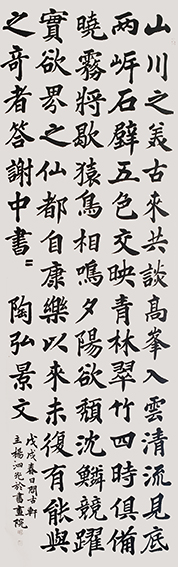 山川之美古來共談高峯入雲清流見底
兩岸石壁五色交映青林翠竹四時俱備
曉霧將歇猿鳥相鳴夕陽欲頹沈鱗競躍
實欲界之仙都自康樂以來未復有能與
之奇者答謝中書〃 陶弘景文
戊戌春日閒古軒
主楊泗光於書畫院